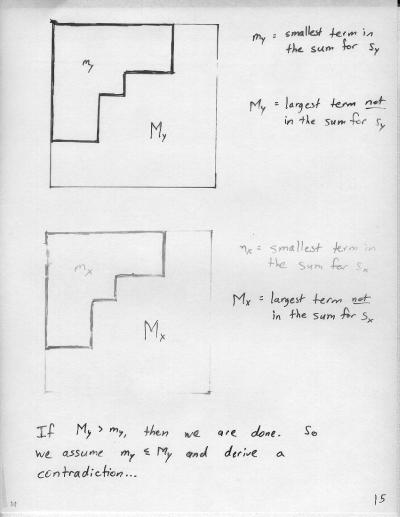 my
My
my = smallest term in
the sum for sy
My = largest term not
in the sum for sy
mx
Mx
mx = smallest term in
the sum for sx
Mx = largest term not
in the sum for sx
If My > my, then we are done. So
we assume my ≤ My and derive a
contradiction...
15